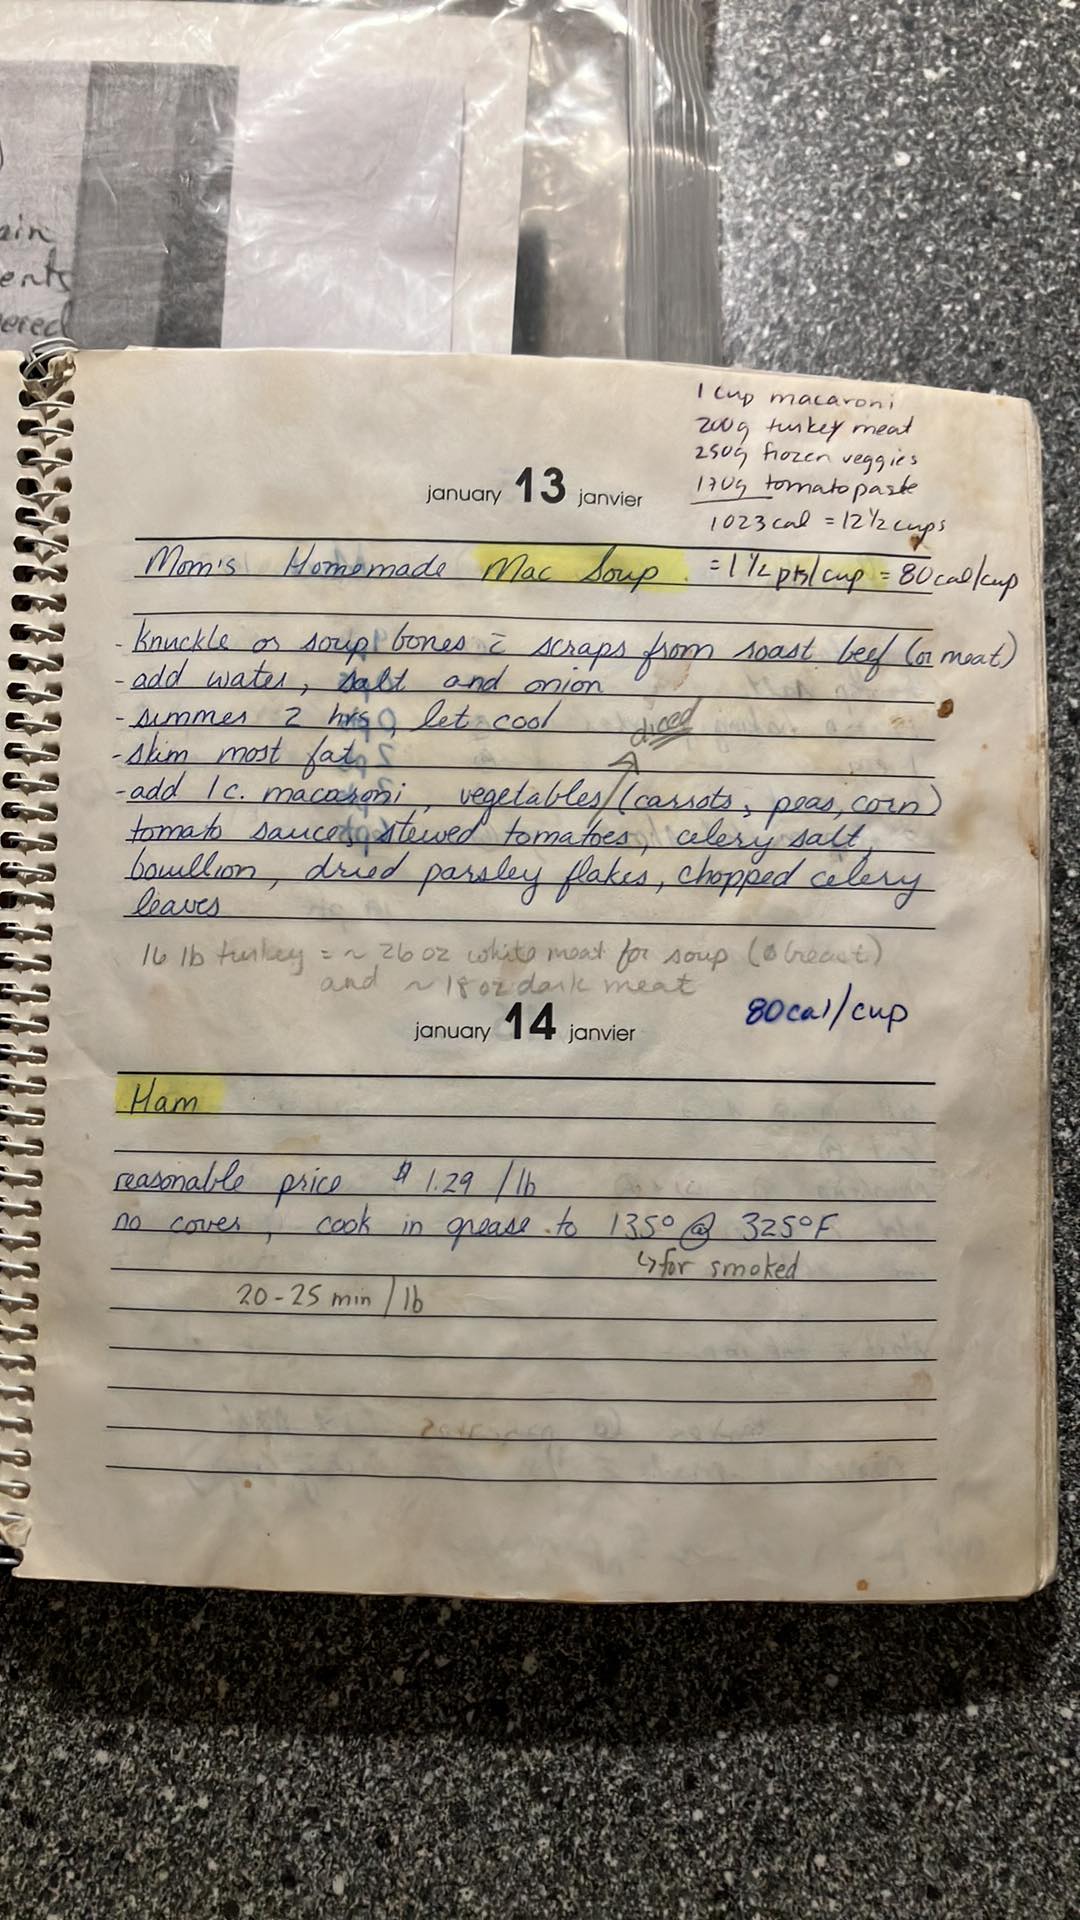 ain
ents
ered
1 cup macaroni
200g turkey meat
250g frozen veggies
170g tomato paste
1023 cal = 12 1/2 cups
january 13 janvier
Mom's Homemade Mac Soup = 1 1/2 pts/cup = 80 cal/cup
- Knuckle or soup bones c̄ scraps from roast beef (or meat)
- add water, salt and onion
- simmer 2 hrs, let cool
diced
- skim most fat
- add 1 c. macaroni, vegetables (carrots, peas, corn)
tomato sauce, stewed tomatoes, celery salt,
bouillion, dried parsley flakes, chopped celery
leaves
16 lb turkey = ~ 26 oz white meat for soup ( breast)
and ~ 18 oz dark meat
80 cal/cup
january 14 janvier
Ham
reasonable price $1.29 / lb
no cover, cook in grease to 135° @ 325°F
↳ for smoked
20-25 min / lb